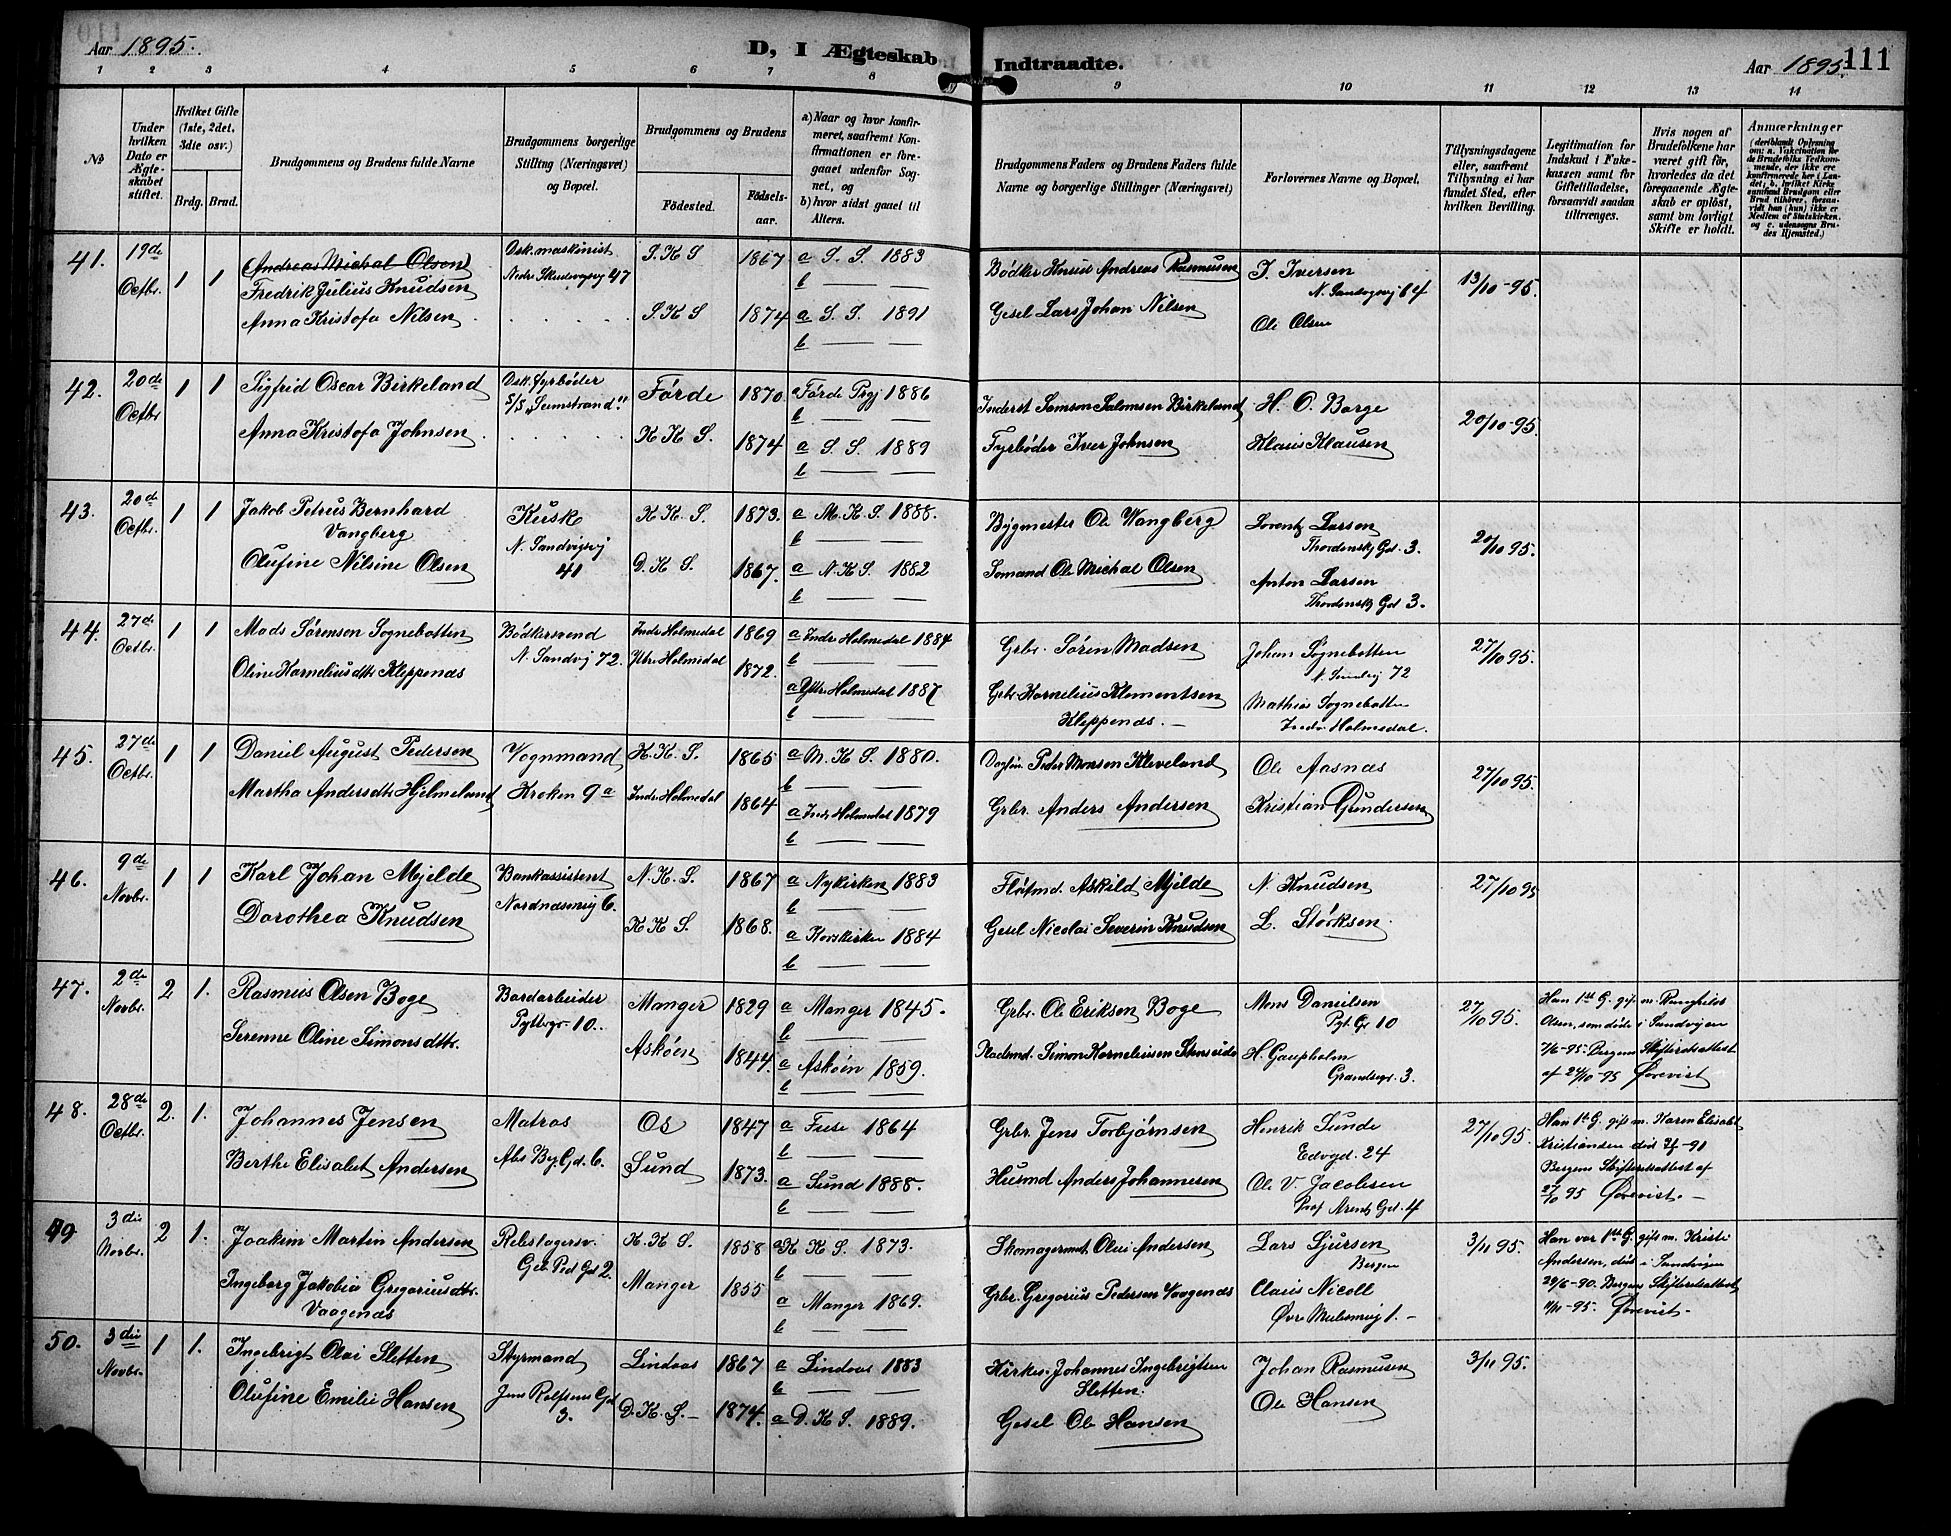 Aar 1895.
D, I Ægteskab Indtraadte.
Aar 1895. 111
1 2 3 4 5 6 7 8 9 10 11 12 13 14
No
Under hvilken Dato er Ægteskabet stiftet.
Hvilket Gifte (1ste, 2det, 3die osv.)
Brdg. Brud.
Brudgommens og Brudens fulde Navne
Brudgommens borgerlige Stilling (Næringsvei) og Bopæl.
Brudgommens og Brudens
Fødested.
Fødselsaar.
a) Naar og hvor konfirmeret, saafremt Konfirmationen er foregaaet udenfor Sognet, og
b) hvor sidst gaaet til Alters.
Brudgommens Faders og Brudens Faders fulde Navne og borgerlige Stillinger (Næringsvei)
Forlovernes Navne og Bopæl.
Tillysningsdagene eller, saafremt Tillysning ei har fundet Sted, efter hvilken Bevilling.
Legitimation for Indskud i Enkekassen samt for Giftetilladelse, forsaavidt saadan tiltrænges.
Hvis nogen af Brudefolkene har været gift før, hvorledes da det foregaaende Ægteskab er opløst, samt om lovligt Skifte er holdt.
Anmærkninger
41. 19de Octbr. 1 1
Andreas Michal Olsen
Fredrik Julius Knudsen
Anna Kristofa Nilsen
Dsk. maskinist
Nedre Skudevigsvej 47
S. K S 1867 a S. S. 1883
b — —
S. K S 1874 a S. S. 1891
b — —
Bødker Knud Andreas Rasmusen
Gesel Lars Johan Nilsen
J. Iversen
N. Sandvgvj 64
Ole Olsen
13/10-95.
42. 20de Octbr. 1 1
Sigfrid Oscar Birkeland
Anna Kristofa Johnsen
Dsk. Fyrbøder
S/S „Sumstrand"
Førde 1870 a Førde Prgj 1886
b — —
K K S. 1874 a S. S. 1889
b — —
Inderst Samson Salomsen Birkeland
Fyrbøder Iver Johnsen
H. O. Borge
Klaus Klausen
20/10-95.
43. 20de Octbr. 1 1
Jakob Petrus Bernhard
Vangberg
Olufine Nilsine Olsen
Kusk
N. Sandvigsvj
41
K K. S. 1873. a M. K S. 1888.
b — —
D. K S. 1867. a N. K S. 1882
b — —
Bygmester Ole Wangberg
Sømand Ole Michal Olsen
Lorentz Larsen
Thordensk Gd. 3.
Anton Larsen
Thordensk Gd 3.
20/10 95.
44. 27de Octbr. 1 1
Mads Sørensen Sognebotten
Oline Kornelius dtr Kleppenæs
Bødkersvend
N. Sandvj 72.
Indre Holmedal 1869 a Indre Holmedal 1884
b — —
Ytre Holmedal 1872. a Ytre Holmedal 1887
b — —
Grbr. Søren Madsen
Gbr Kornelius Klementsen
Kleppenæs. —
Johan Sognebotten
N. Sandvj 72
Mathias Sognebotten
Indre Holmedal.
27/10 95.
45. 27de Octbr. 1 1
Daniel August Pedersen
Martha Andersdtr Hjelmeland
Vognmand
Kroken 9a
K. K. S. 1865 a M. K S. 1880.
b — —
Indre Holmedal 1864 a Indr Holmedal 1879
b — —
Peder Monsen Kleveland
Grbr. Anders Andersen
Ole Aasnæs
Kristian Gundersen
27/10 95.
46. 9de Novbr. 1 1
Karl Johan Mjelde
Dorothea Knudsen
Bankassistent
Nordnæsveig 6.
N. K. S. 1867 a Nykirken 1883
b — —
K K S. 1868. a Korskirken 1884
b — —
Fløtmd. Askild Mjelde
Gesel Nicolai Severin Knudsen
N. Knudsen
L. Størksen
27/10 95
47. 2de Novbr. 2 1.
Rasmus Olsen Boge
Serenne Oline Simonsdtr.
Bordarbeider
Pyttergr. 10.
Manger 1829 a Manger 1845.
b — —
Askøen 1844. a Askøen 1859.
b — —
Grbr. Ole Eriksen Boge
Simon Kornelieusen Stenseide
Mons Danielsen
Pyt. Gr 10
H. Gaupholm
Grandsgr. 3.
27/10 95.
Han 1st G. gift m. Ranghild
Olsen, som døde i Sandvigen
7/6-95. Bergens Skifteretsattest
af 24/10-95 Forevist
48. 28de Octbr. 2. 1.
Johannes Jensen
Berthe Elisabet Andersen
Matros
Abs By. Gd. 6.
Os 1847 a Fuse 1864
b — —
Sund 1873. a Sund 1888.
b — —
Grbr. Jens Torbjørnsen
Husmd Anders Johannesen
Henrik Sunde
Edvgd. 24
Ole V. Jacobsen
Prof Arentz Gd. 4
27/10 95.
Han 1st G. gift m. Karen Elisabet
Kristiansen død
Bergens Skifteretsattest af
27/10 95 Forevist. —
49 3die Novbr. 2 1.
Joakim Martin Andersen
Ingeborg Jakobia Gregoriusdtr.
Vaagenæs
Rebslagersv.
Geb. Ped Gd 2.
K. K S. 1858 a K K S. 1873.
b — —
Manger 1855 a Manger 1869.
b — —
Skomagermst. Olai Andersen
Grbr. Gregorius Pedersen Vaagenæs
Lars Sjursen
Bergen
Claus Nicoll
Øvre Mulesmug 1. —
3/11 95.
Han var 1st G. gift m. Kristi
Andersen, død i Sandvigen
29/6-90. Bergens Skifteretsattest
1/11-95. Forevist —
50. 3die Novbr. 1 1.
Ingebrigt Olai Sletten
Olufine Emilie Hansen
Styrmand
Jens Rolfsens Gd
3.
Lindaas 1867 a Lindaas 1883
b — —
D. K. S. — 1874. a D. K S. 1889.
Johannes Ingebrigtsen
Sletten.
Gesel Ole Hansen
Johan Rasmusen
Ole Hansen
3/11 95.